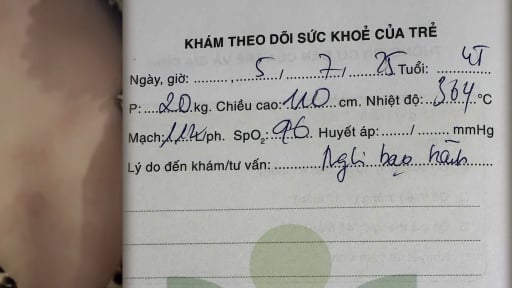 KHÁM THEO DÕI SỨC KHOẺ CỦA TRẺ
Ngày, giờ: ........, 5 / 7 / 25 Tuổi: 4T
P: 20 kg. Chiều cao: 110 cm. Nhiệt độ: 36,4 °C
Mạch: /ph. SpO2: 96. Huyết áp: ....../ ........ mmHg
Lý do đến khám/tư vấn: Nghi bạo hành